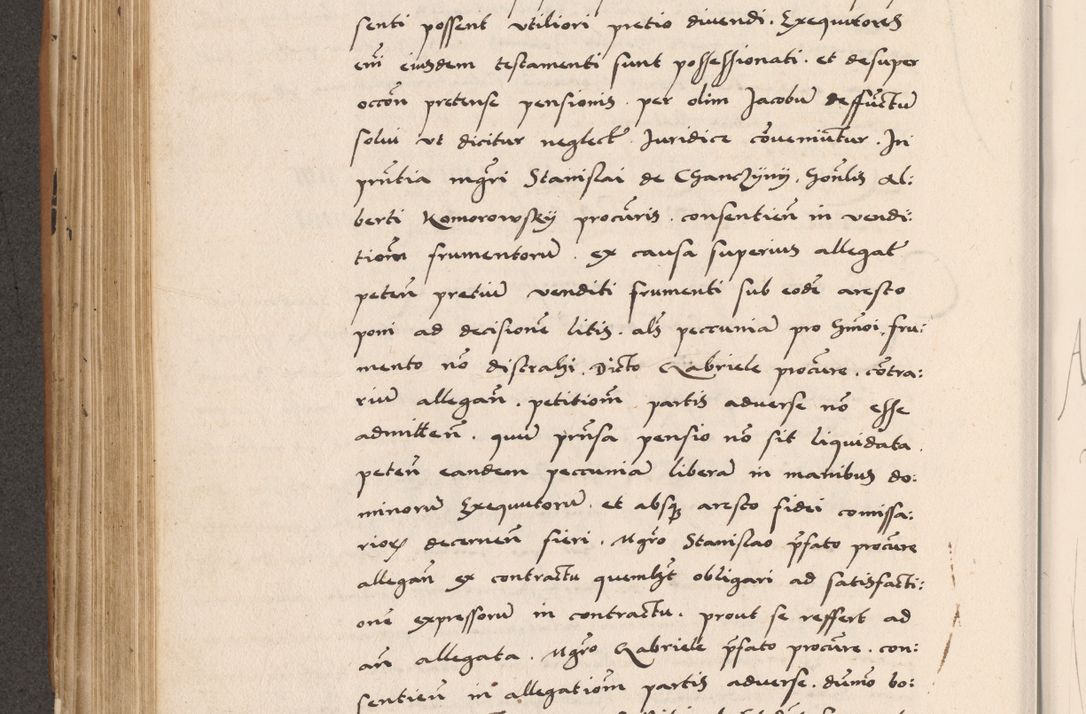 senti possent utiliori pretio divendi. Exequutores
em̄ eiusdem testamenti sunt possessionati. et desuper
occōn pretense pensionis. per olim Jacobū deffūctū
solui ut dicitur neglect̄. Juridice cōveniūtur. In
pn̄tia mgr̄i Stanislai de Chanczyny, honlis Al:
berti Komorowsky procūris. consentien̄ in vendi:
tiom̄ frumentorū. ex causa superius allegat̄
peten̄ pretiū venditi frumenti sub eodē aresto
poni ad decisionē litis. als peccuniā pro hmōi, fru:
mento nō distrahi. Dicto Gabriele procūre. cōtra:
riū allegan̄. petitiom̄ partis adverse nō esse
admitten̄. quū prn̄sa pensio nō sit liquidata.
peten̄ eandem peccuniā liberā in manibus do:
minorū Exequutorū. et absq aresto fidei comissa:
riorꝝ decernen̄ fieri. Mgr̄o Stanislao p̄fato procūre
allegan̄ ex contractu quemlꝫt obligari ad satisfacti:
onē expressorū in contractu. prout se reffert ad
an̄ allegata. Mgr̄o Gabriele p̄fato procūre. con:
sentien̄ in allegatiom̄ partis adverse. dūmo bo: